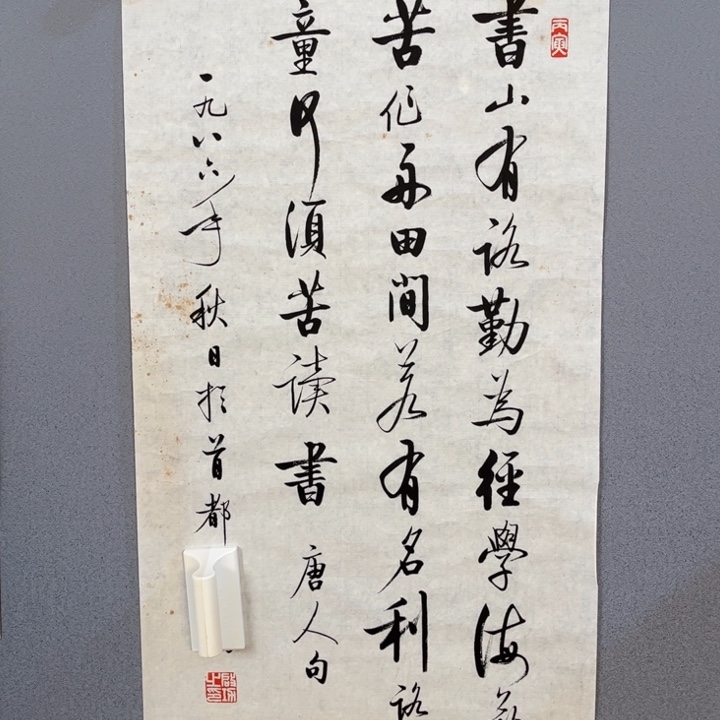 丙寅
書山有路勤為徑學海
苦作舟田間若有名利路
童何須苦讀書 唐人句
一九八六年秋日於首都